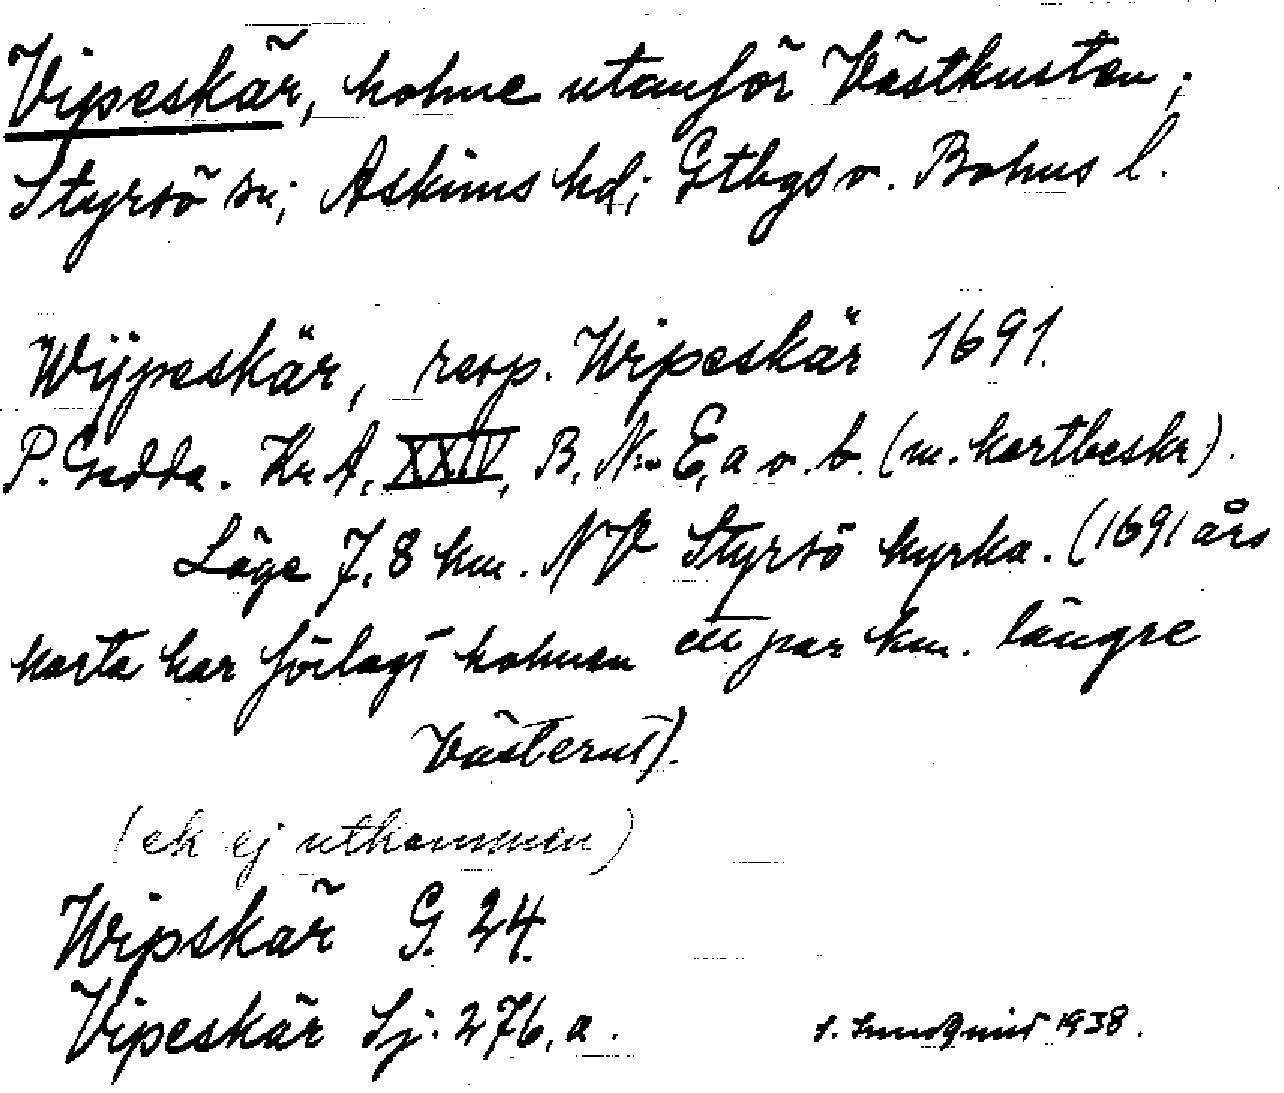 Vipeskär, holme utanför Västkusten;
Styrsö sn; Askims hd; Gtbgs o. Bohus l.
Wijpeskär, resp. Wipeskär 1691.
P. Gedda. Kr. A. XXIV, B, N:o E, a o. b. (m. kartbeskr).
Läge 7,8 km. NV Styrsö kyrka. (1691 års
karta har förlagt holmen ett par km. längre
västerut).
(ek ej utkommen)
Wipskär G. 24.
Vipeskär Sj. 276, a.
1938.